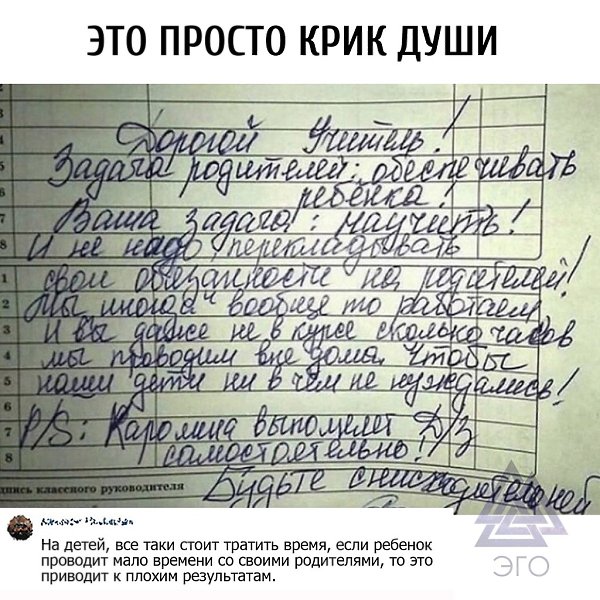 ЭТО ПРОСТО КРИК ДУШИ
3
4
5
6
7
8
Дорогой Учитель!
Задача родителей: обеспечивать
ребёнка!
Ваша задача: научить!
И не надо перекладывать
1
2
3
4
5
6
7
8
свои обязанности на родителей!
Мы иногда вообще то работаем,
И вы даже не в курсе сколько часов
мы проводим вне дома, чтобы
наши дети ни в чём не нуждались!
P/S: Каролина выполняет Д/З
самостоятельно!
дпись классного руководителя
Будьте снисходительней
На детей, все таки стоит тратить время, если ребенок
проводит мало времени со своими родителями, то это
приводит к плохим результатам.
ЭГО